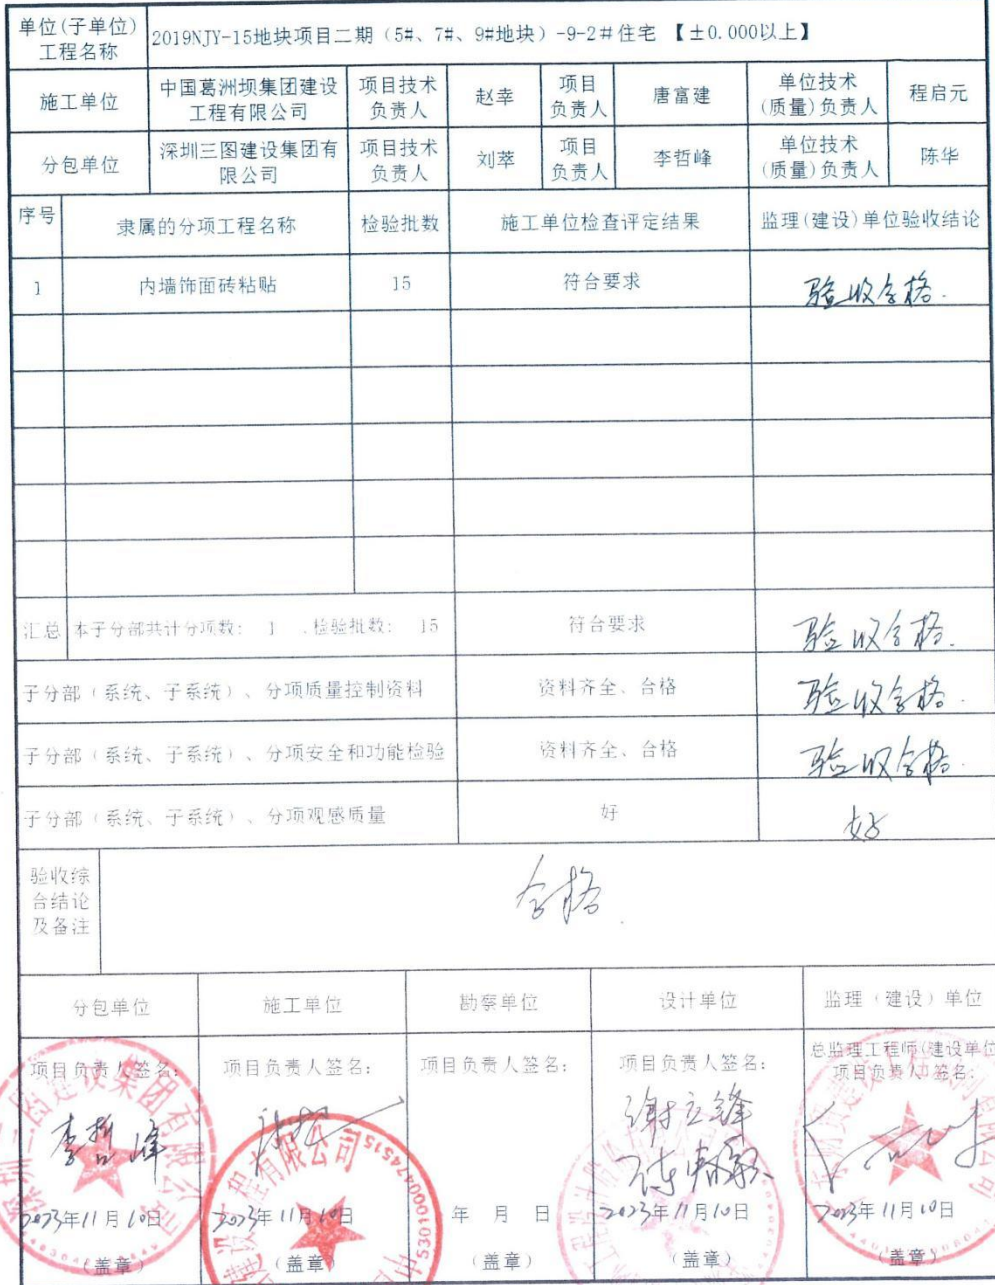 单位(子单位)
工程名称
2019NJY-15地块项目二期（5#、7#、9#地块）-9-2#住宅 【±0.000以上】
施工单位
中国葛洲坝集团建设
工程有限公司
项目技术
负责人
赵幸
项目
负责人
唐富建
单位技术
(质量)负责人
程启元
分包单位
深圳三图建设集团有
限公司
项目技术
负责人
刘萃
项目
负责人
李哲峰
单位技术
(质量)负责人
陈华
序号
隶属的分项工程名称
检验批数
施工单位检查评定结果
监理(建设)单位验收结论
1
内墙饰面砖粘贴
15
符合要求
验收合格.
汇总
本子分部共计分项数: 1 ,检验批数: 15
符合要求
验收合格.
子分部（系统、子系统）、分项质量控制资料
资料齐全、合格
验收合格.
子分部（系统、子系统）、分项安全和功能检验
资料齐全、合格
验收合格.
子分部（系统、子系统）、分项观感质量
好
好
验收综
合结论
及备注
合格.
分包单位
施工单位
勘察单位
设计单位
监理（建设）单位
项目负责人签名:
李哲峰
2023年11月10日
(盖章)
项目负责人签名:
2023年11月10日
(盖章)
项目负责人签名:
年 月 日
(盖章)
项目负责人签名:
谢立锋
2023年11月10日
(盖章)
总监理工程师(建设单位
项目负责人)签名:
2023年11月10日
(盖章)
深圳三图建设集团有限公司